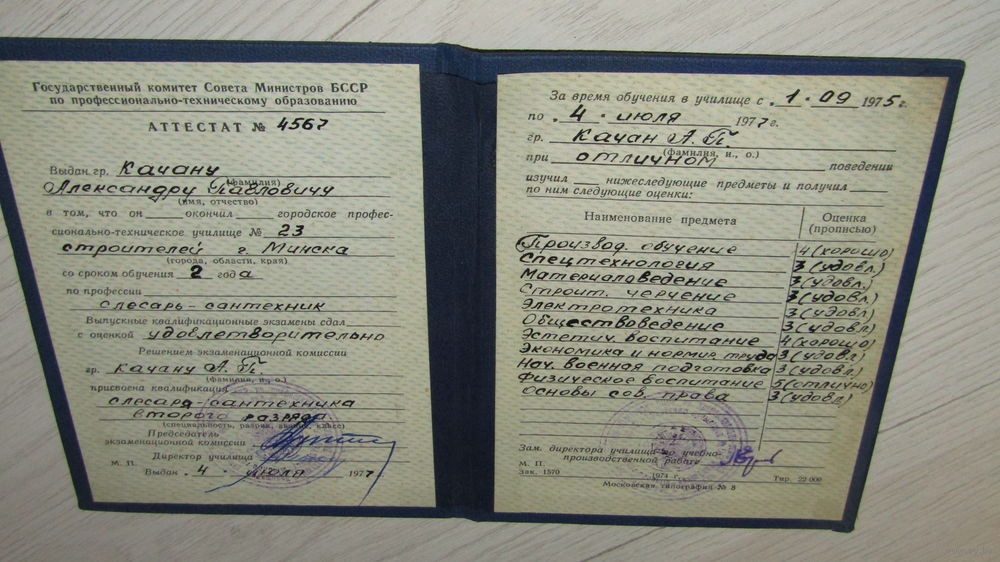 Государственный комитет Совета Министров БССР
по профессионально-техническому образованию
АТТЕСТАТ № 4567
Выдан гр. Качану
(фамилия)
Александру Павловичу
(имя, отчество)
в том, что он окончил городское профес-
сионально-техническое училище № 23
строителей г. Минска
(города, области, края)
со сроком обучения 2 года
по профессии
слесарь-сантехник
Выпускные квалификационные экзамены сдал
с оценкой удовлетворительно
Решением экзаменационной комиссии
гр. Качану А. П.
(фамилия, и., о.)
присвоена квалификация
слесаря-сантехника
второго разряда
(специальность, разряд, звание, класс)
Председатель
экзаменационной комиссии
Директор училища
М. П.
Выдан 4 июля 1977
За время обучения в училище с 1.09 1975 г.
по 4 июля 1977 г.
гр. Качан А. П.
(фамилия, и., о.)
при отличном поведении
изучил нижеследующие предметы и получил
по ним следующие оценки:
Наименование предмета Оценка (прописью)
Производ. обучение 4 (хорошо)
Спецтехнология 3 (удовл.)
Материаловедение 3 (удовл.)
Строит. черчение 3 (удовл.)
Электротехника 3 (удовл.)
Обществоведение 3 (удовл.)
Эстетич. воспитание 4 (хорошо)
Экономика и нормир. труда 3 (удовл.)
Нач. военная подготовка 3 (удовл.)
Физическое воспитание 5 (отлично)
Основы сов. права 3 (удовл.)
Зам. директора училища по учебно-
производственной работе
М. П.
Зак. 1570 1974 г. Тир. 22 000
Московская типография № 8